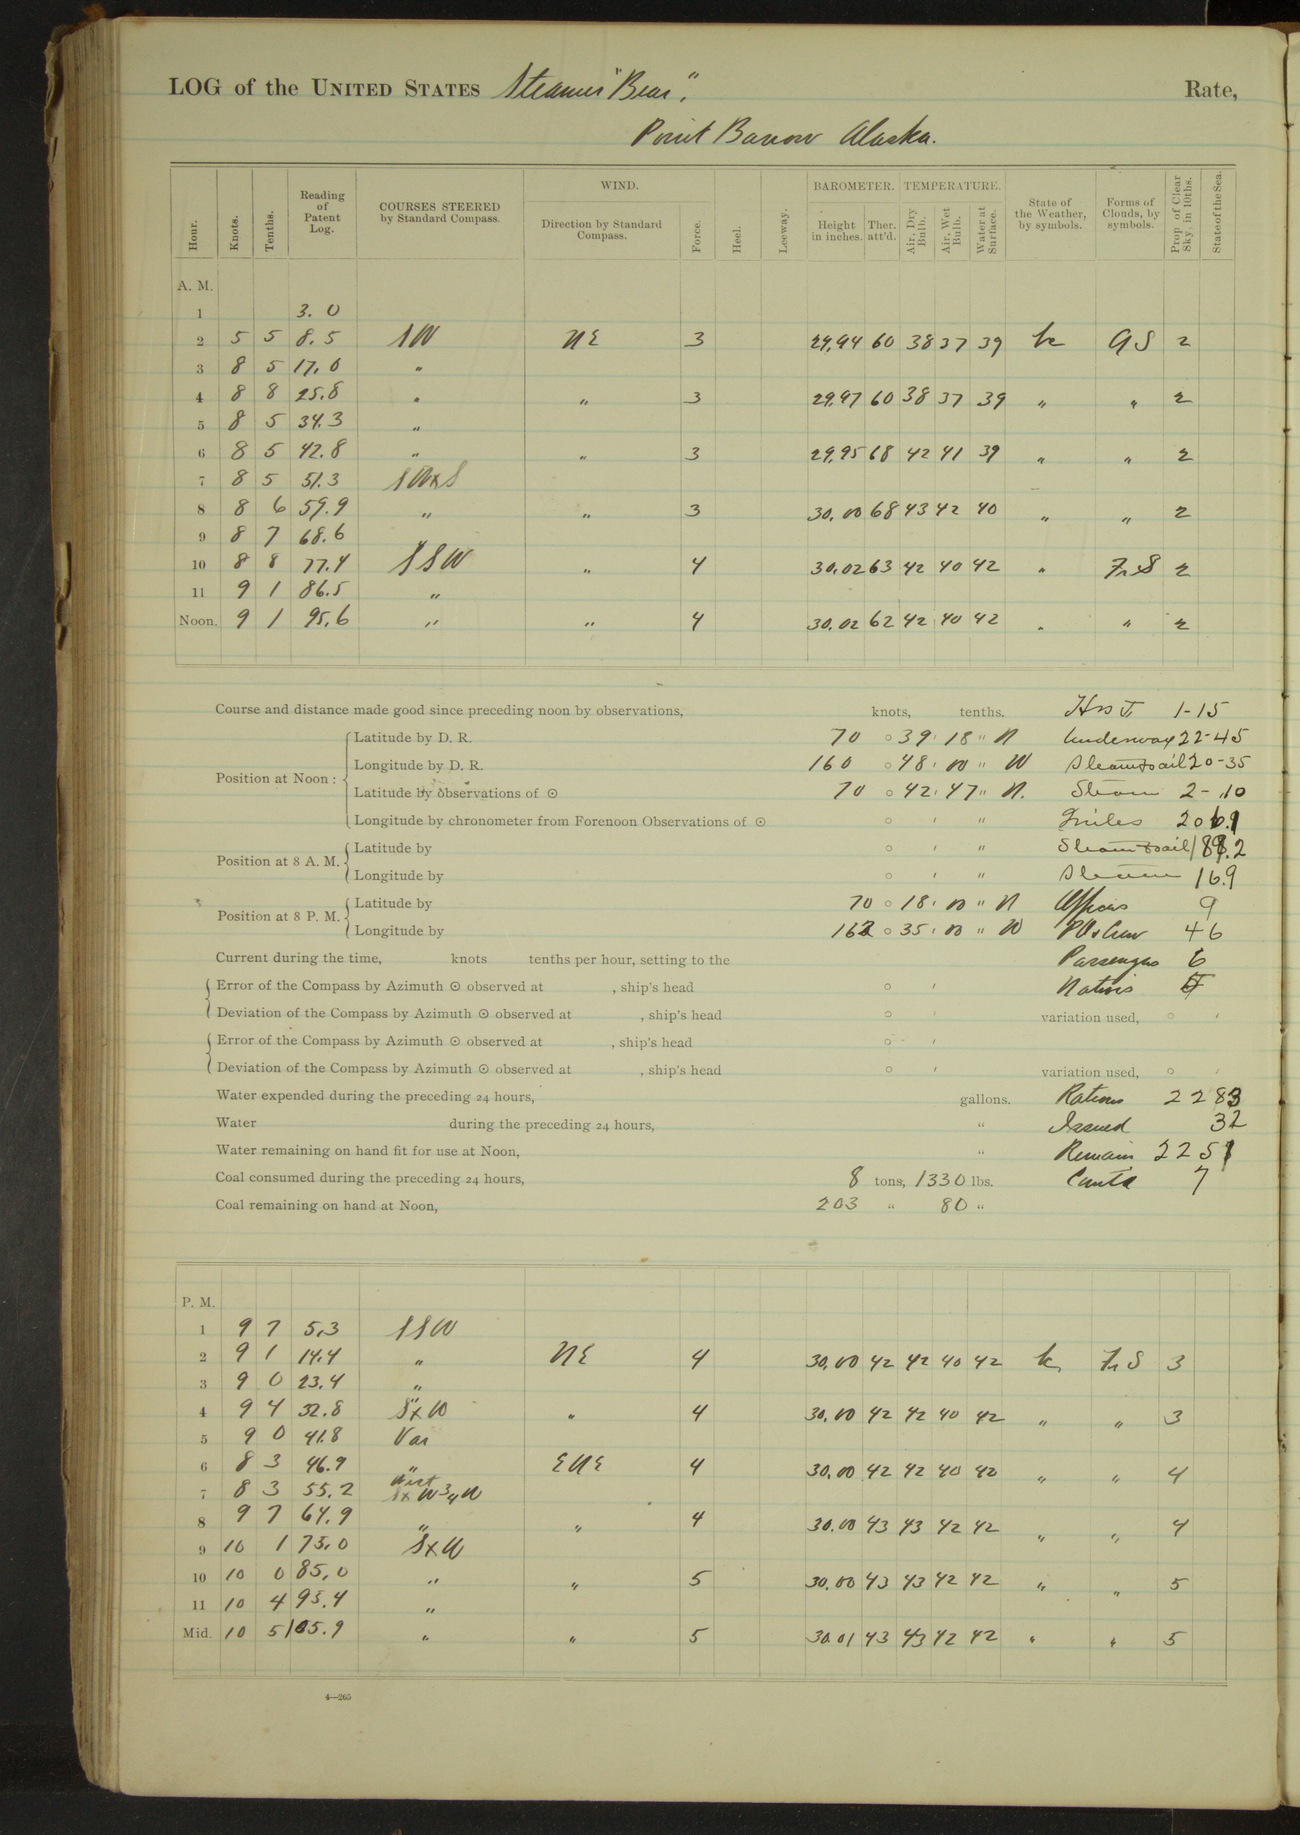 LOG of the UNITED STATES Steamer "Bear", Rate,
Point Barrow Alaska.
Hour. Knots. Tenths. Reading of Patent Log. COURSES STEERED by Standard Compass. WIND. Direction by Standard Compass. Force. Heel. Leeway. BAROMETER. Height in inches. Ther. att'd. TEMPERATURE. Air, Dry Bulb. Air, Wet Bulb. Water at Surface. State of the Weather, by symbols. Forms of Clouds, by symbols. Prop. of Clear Sky, in 10ths. State of the Sea.
A. M.
1 3.0
2 5 5 8.5 SW NE 3 29.94 60 38 37 39 bc S 2
3 8 5 17.0 "
4 8 8 25.8 " " 3 29.97 60 38 37 39 " " 2
5 8 5 34.3 "
6 8 5 42.8 " " 3 29.95 68 42 41 39 " " 2
7 8 5 51.3 SWxS
8 8 6 59.9 " " 3 30.00 68 43 42 40 " " 2
9 8 7 68.6
10 8 8 77.4 SSW " 4 30.02 63 42 40 42 " Fr S 2
11 9 1 86.5 "
Noon. 9 1 95.6 " " 4 30.02 62 42 40 42 " " 2
Course and distance made good since preceding noon by observations, knots, tenths. 1-15
Position at Noon: Latitude by D. R. 70 ° 39 ' 18 " N Underway 22-45
Longitude by D. R. 160 ° 48 ' 00 " W Steam & sail 20-35
Latitude by observations of ☉ 70 ° 42 ' 47 " N. Steam 2-10
Longitude by chronometer from Forenoon Observations of ☉ ° ' " Miles 206.1
Position at 8 A. M. Latitude by ° ' " Steam & sail 189.2
Longitude by ° ' " Steam 16.9
Position at 8 P. M. Latitude by 70 ° 18 ' 00 " N Officers 9
Longitude by 162 ° 35 ' 00 " W PO & Crew 46
Current during the time, knots tenths per hour, setting to the Passengers 6
Error of the Compass by Azimuth ☉ observed at , ship's head ° ' Natives
Deviation of the Compass by Azimuth ☉ observed at , ship's head ° ' variation used, ° '
Error of the Compass by Azimuth ☉ observed at , ship's head ° '
Deviation of the Compass by Azimuth ☉ observed at , ship's head ° ' variation used, ° '
Water expended during the preceding 24 hours, gallons. Rations 2283
Water during the preceding 24 hours, " Issued 32
Water remaining on hand fit for use at Noon, " Remain 2251
Coal consumed during the preceding 24 hours, 8 tons, 1330 lbs. 7
Coal remaining on hand at Noon, 203 " 80 "
P. M.
1 9 7 5.3 SSW
2 9 1 14.4 " NE 4 30.00 42 42 40 42 bc Fr S 3
3 9 0 23.4 "
4 9 4 32.8 SxW " 4 30.00 42 42 40 42 " " 3
5 9 0 41.8 Var
6 8 3 46.9 " ENE 4 30.00 42 42 40 42 " " 4
7 8 3 55.2 SxW 3/4 W
8 9 7 64.9 " " 4 30.00 43 43 42 42 " " 4
9 10 1 75.0 SxW
10 10 0 85.0 " " 5 30.00 43 43 42 42 " " 5
11 10 4 95.4 "
Mid. 10 5 105.9 " " 5 30.01 43 43 42 42 " " 5
4—265